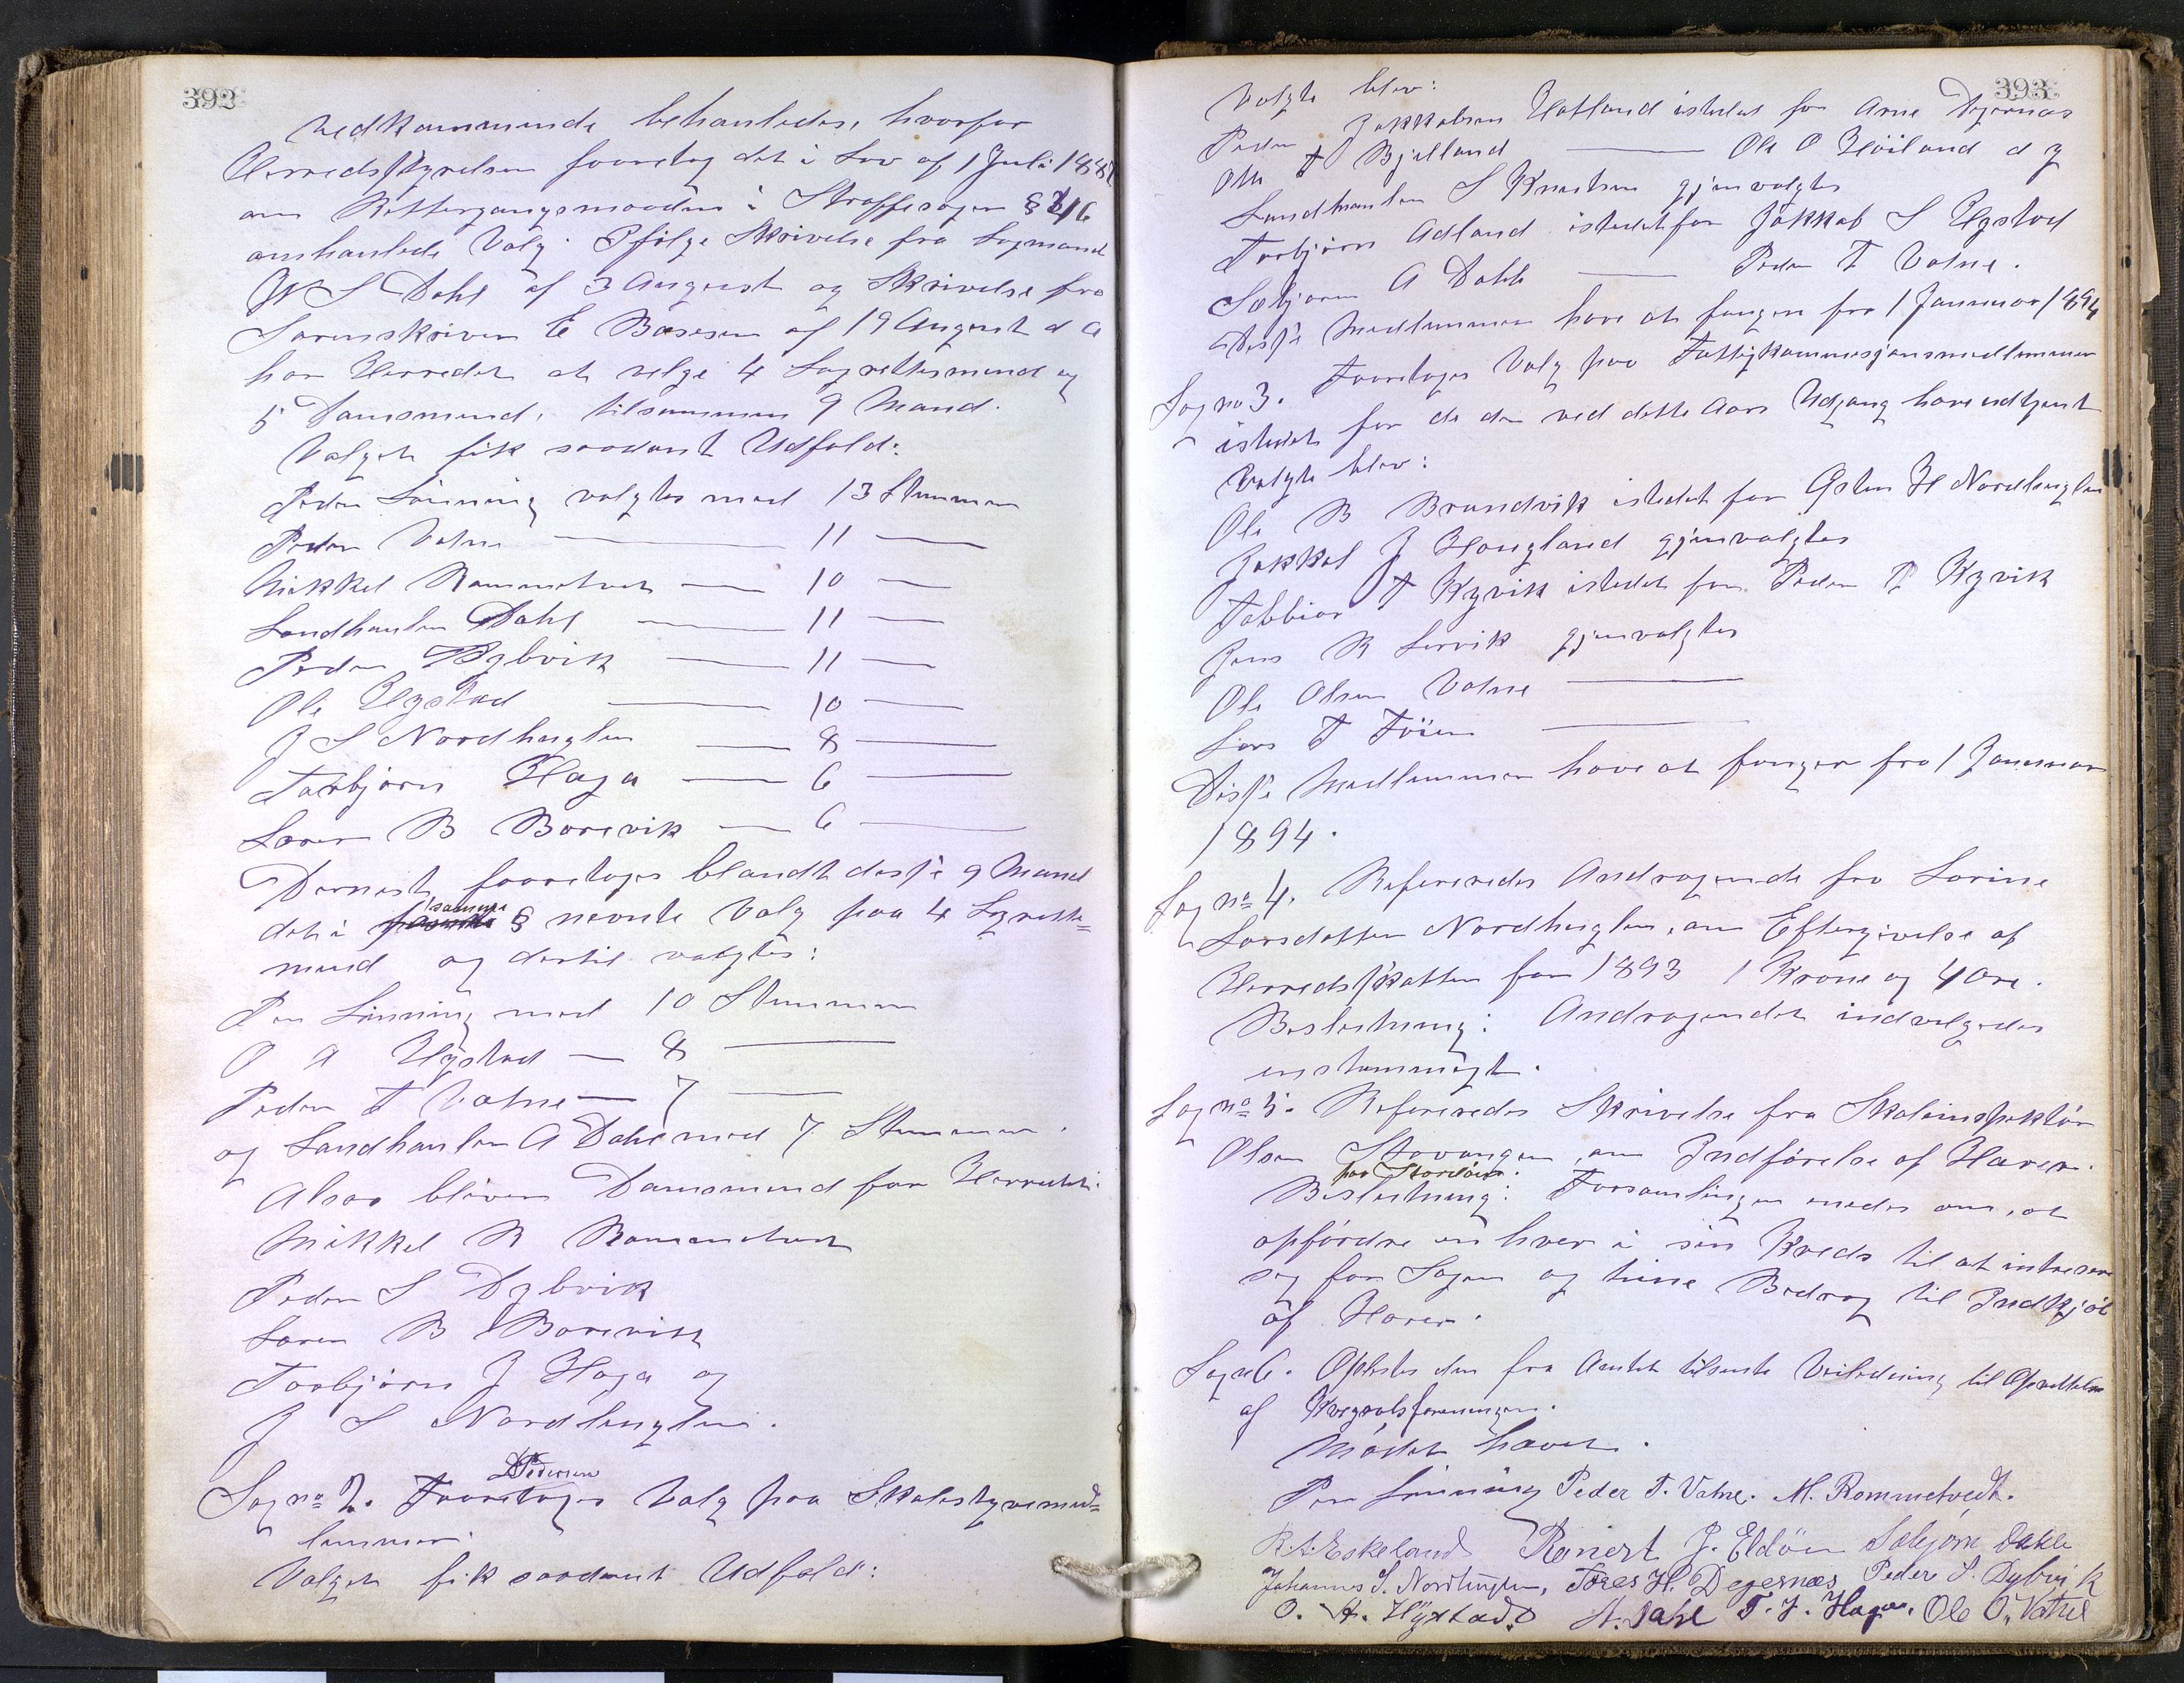 392
Vedkommende behandledes, hvorfor
Herredsstyrelsen fooretog det i Lov af 1 Juli 1887
om Rettergangsmaaden i Straffesager §
omhanlede Valg. Ifølge Skrivelse fra Lagmand
Dahl af 3 August og Skrivelse fra
Sorenskriver E Børsesen af 19 August d A
har Herredet at velge 4 Lagrettesmend og
5 Domsmend, tilsammen 9 Mand.
Valget fik saadant Udfald:
Peder Lønning valgtes med 13 Stemmer
Peder Vatne — 11 —
Mikkel Rommetvet — 10 —
Landhanler Dahl — 11 —
Peder Dybvik — 11 —
Ole Hystad — 10 —
J S Nordhuglen — 8 —
Torbjørn Haga — 6 —
Søren B Borevik — 6 —
Dernest foortoges blandt desse 9 Mand
det i samme § nevnte Valg paa 4 Lagrette=
mend og dertil valgtes:
Per Lønning med 10 Stemmer
O A Hystad — 8 —
Peder T Vatne — 7 —
og Landhanler A Dahl med 7 Stemmer.
Alsaa bliver Domsmend for Herredet:
Mikkel R Rommetvet
Peder S Dybvik
Søren B Borevik
Torbjørn J Haga og
J S Nordhuglen.
Sag no 2. Foortoges Valg paa Skolestyremed=
lemmer.
Valget fik saadant Udfald:
393
Valgte blev:
Peder Jakkobsen Hatland istedet for Arne Dejernæs
Ole T Bjelland — Ole O Høiland d y
Landhanler S Knutsen gjenvalgtes
Torbjørn Adland istedetfor Jakkob S Hystad
Sæbjørn A Dahle — Peder T Vatne.
Desse Medlemmer have at fungere fra 1 Januar 1894
Sag no 3. Foortoges Valg paa Fattigkommesjonsmedlemmer
istedet for de der ved dette Aars Udgang have udtjent
Valgte blev:
Ole B Brandvik istedet for Østen H Nordhuglen
Jakkob J Hougland gjenvalgtes
Tobbias T Kyvik istedet for Peder T Kyvik
Jens R Lervik gjenvalgtes
Ole Olsen Vatne —
Lars T Tøien —
Disse Medlemmer have at fungere fra 1 Januar
1894.
Sag no 4. Refereredes Andragende fra Sorine
Larsdatter Nordhuglen, om Eftergivelse af
Herredsskatten for 1893 1 Krone og 4 Øre.
Beslutning: Andragendet indvelgedes
enstemmigt.
Sag no 5. Refereredes Skrivelse fra Skoleinspektør
Olsen Stavanger, om Indførelse af Harer
paa Stordøen.
Beslutning: Forsamlingen enedes om, at
opfordre en hver i sin Kreds til at intresere
sig for Sagen og tinne Bedrag til Indkjøb
af Harer.
Sag n 6. Oplestes den fra Amtet tilsente Veiledning til Oprettelse
af Kvegavlsforeninger.
Mødet hævet.
Per Lønning Peder T. Vatne. M. Rommetvedt.
R. A. Eskeland Ranert J. Eldøen Sæbjørn Dahle
Johannes S. Nordhuglen, Tøres H. Dejernæs Peder S. Dybvik
O. A. Hystad. A. Dahl T. J. Haga. Ole O. Vatne